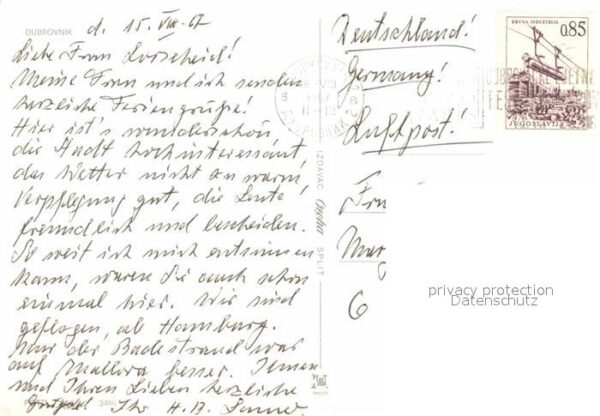 DUBROVNIK
d. 15. VIII. 67
Liebe Frau Lorscheid!
Meine Frau und ich senden
herzliche Feriengrüße!
Hier ist's wunderschön,
die Stadt hochinteressant,
das Wetter nicht zu warm,
Verpflegung gut, die Leute
freundlich und bescheiden.
So weit ich mich entsinnen
kann, waren Sie auch schon
einmal hier. Wir sind
geflogen, ab Hamburg.
Nur der Badestrand war
auf Mallorca besser. Ihnen
und Ihren Lieben herzliche
Grüße! Ihr H.
IZDAVAČ SPLIT
Deutschland!
Germany!
Luftpost!
Frau
Mar
6
DRVNA INDUSTRIJA
0.85
JUGOSLAVIJA
privacy protection
Datenschutz